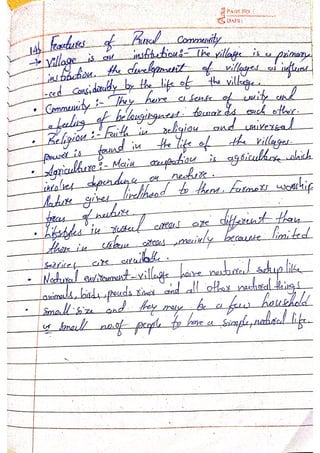 PAGE NO:
DATE:
14) Features of Rural Community
→ Village is an institution:- The village is a primary
institution. the development of villages is influen
-ced considerably by the life of the village.
• Community :- They have a sense of unity and
a feeling of belongingness towards each other.
• Religion :- Faith in religion and universal
power is found in the life of the villages
• Agriculture :- Main occupation is agriculture which
involves dependence on nature.
Nature gives livelihood to them. Farmers worship
of nature.
• Lifestyles in rural areas are different than
those in urban areas, mainly because limited
services are available.
• Natural environment - village have natural setup like
animals, birds, ponds river and all other natural things
• small size and they may be a few household
or small no. of people to have a simple, natural life.